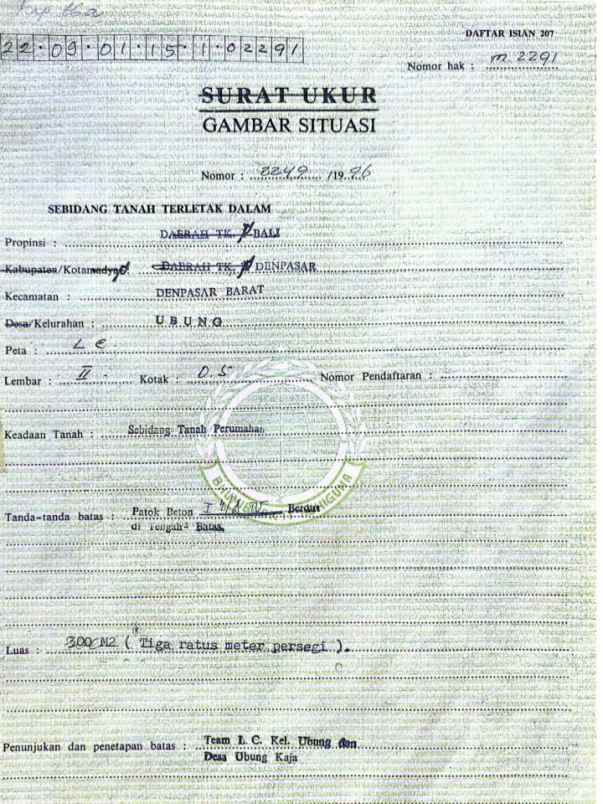 DAFTAR ISIAN 207
22.09.01.15.1.02291
Nomor hak : M. 2291
SURAT UKUR
GAMBAR SITUASI
Nomor : 2249 /19 96
SEBIDANG TANAH TERLETAK DALAM
Propinsi : DAERAH TK. I BALI
Kabupaten/Kotamadya DAERAH TK. II DENPASAR
Kecamatan : DENPASAR BARAT
Desa/Kelurahan : UBUNG
Peta : L C.
Lembar : II . Kotak : D. 5 Nomor Pendaftaran :
Keadaan Tanah : Sebidang Tanah Perumahan
BHUMI BHAKTI ADHIGUNA
Tanda-tanda batas : Patok Beton I Berdiri
di Tengah² Batas.
Luas : 300 M2 ( Tiga ratus meter persegi ).
Penunjukan dan penetapan batas : Team L. C. Kel. Ubung dan
Desa Ubung Kaja